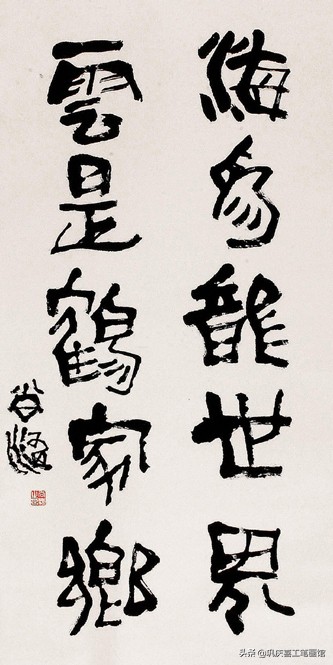 海為龍世界
雲是鶴家鄉
尚濤
头条 @巩庆喜工笔画馆